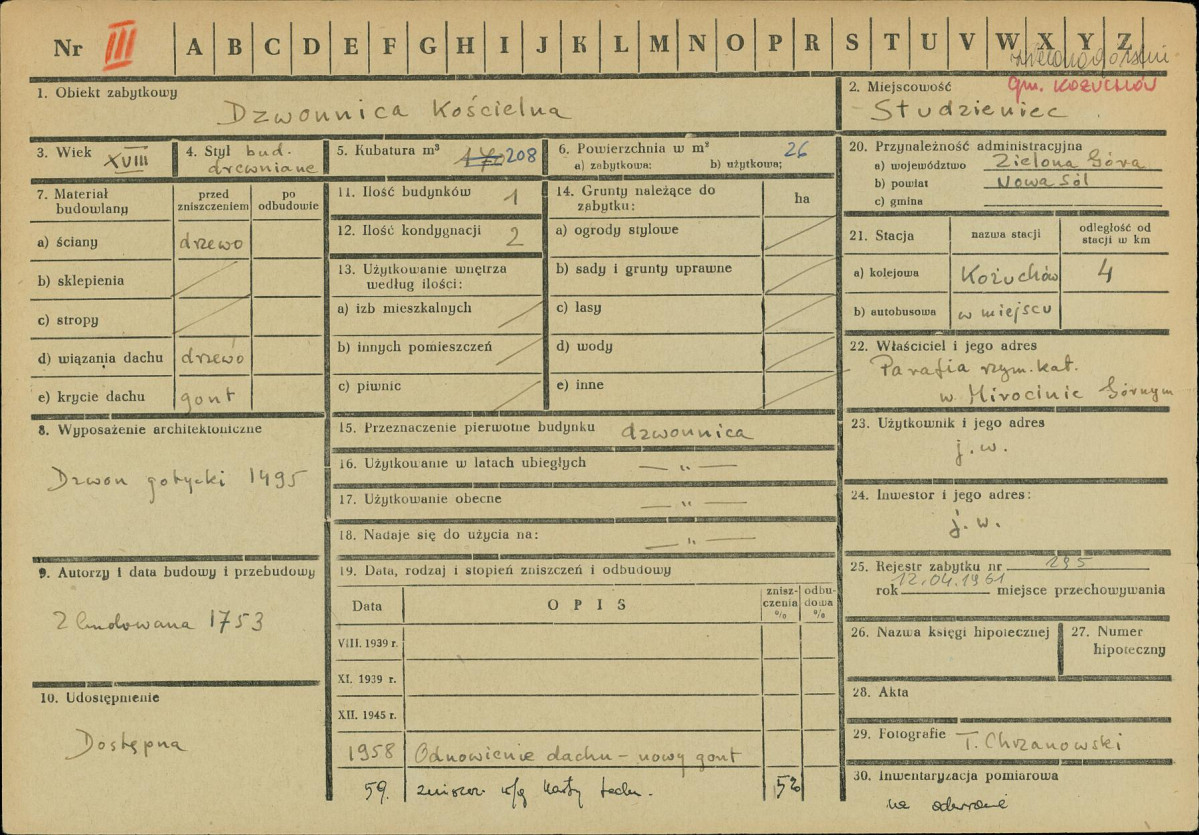 Nr III A B C D E F G H I J K L M N O P R S T U V W X Y Z
gm. KOŻUCHÓW
1. Obiekt zabytkowy
Dzwonnica Kościelna
2. Miejscowość
Studzieniec
3. Wiek XVIII
4. Styl bud.
drewniane
5. Kubatura m³ 208
6. Powierzchnia w m² 26
a) zabytkowa: b) użytkowa:
20. Przynależność administracyjna
a) województwo Zielona Góra
b) powiat Nowa Sól
c) gmina
7. Materiał budowlany
przed zniszczeniem
po odbudowie
a) ściany drzewo
b) sklepienia
c) stropy
d) wiązania dachu drzewo
e) krycie dachu gont
11. Ilość budynków 1
12. Ilość kondygnacji 2
13. Użytkowanie wnętrza
według ilości:
a) izb mieszkalnych
b) innych pomieszczeń
c) piwnic
14. Grunty należące do
zabytku:
ha
a) ogrody stylowe
b) sady i grunty uprawne
c) lasy
d) wody
e) inne
21. Stacja
nazwa stacji
odległość od
stacji w km
a) kolejowa Kożuchów 4
b) autobusowa w miejscu
22. Właściciel i jego adres
Parafia rzym. kat.
w Mirocinie Górnym
8. Wyposażenie architektoniczne
Dzwon gotycki 1495
15. Przeznaczenie pierwotne budynku dzwonnica
16. Użytkowanie w latach ubiegłych — „ —
17. Użytkowanie obecne — „ —
18. Nadaje się do użycia na: — „ —
23. Użytkownik i jego adres
j. w.
24. Inwestor i jego adres:
j. w.
9. Autorzy i data budowy i przebudowy
Zbudowana 1753
19. Data, rodzaj i stopień zniszczeń i odbudowy
Data
OPIS
znisz-
czenia
%
odbu-
dowa
%
VIII. 1939 r.
XI. 1939 r.
XII. 1945 r.
1958 Odnowienie dachu – nowy gont
59. zniszcz. w/g karty techn. 52
25. Rejestr zabytku nr 295
rok 12.04.1961 miejsce przechowywania
26. Nazwa księgi hipotecznej
27. Numer
hipoteczny
10. Udostępnienie
Dostępna
28. Akta
29. Fotografie T. Chrzanowski
30. Inwentaryzacja pomiarowa
na odwrocie